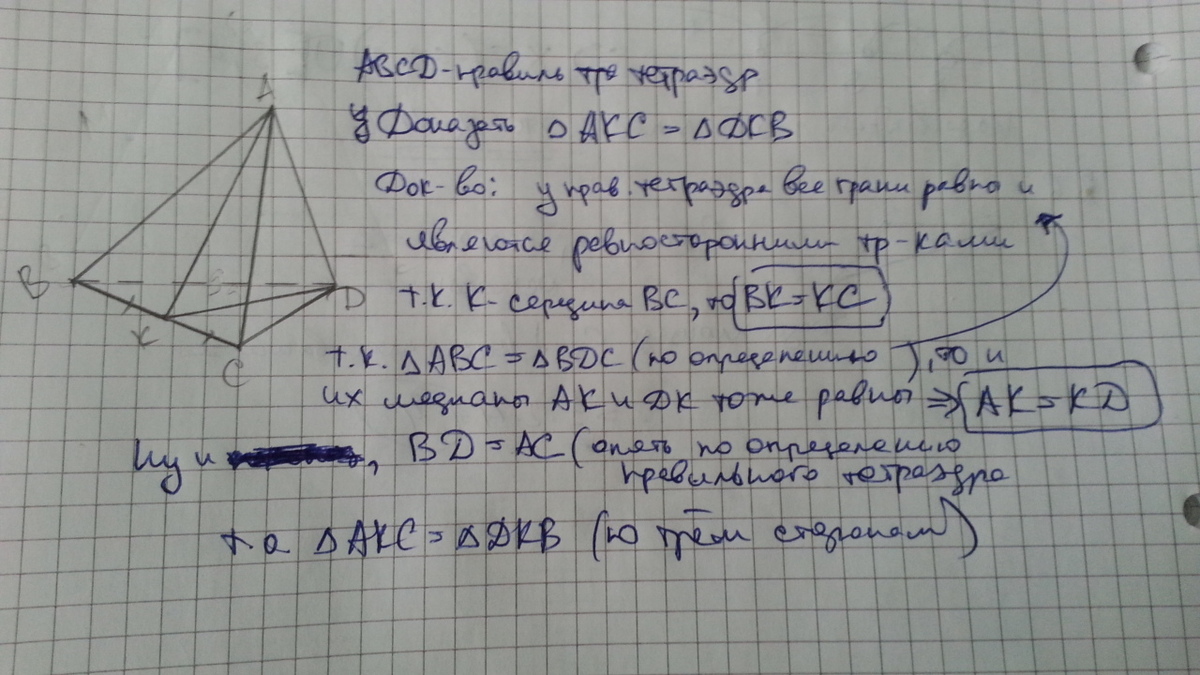 A
B
K
C
D
ABCD-правиль тетраэдр
Доказать △AKC = △DKB
Док-во: у прав. тетраэдра все грани равны и
являются равносторонними тр-ками
т.к. K- середина BC, то BK=KC
т.к. △ABC = △BDC (по определению), то и
их медианы AK и DK тоже равны => AK=KD
Ну и, BD=AC (опять по определению
правильного тетраэдра
т.о △AKC = △DKB (по трём сторонам)